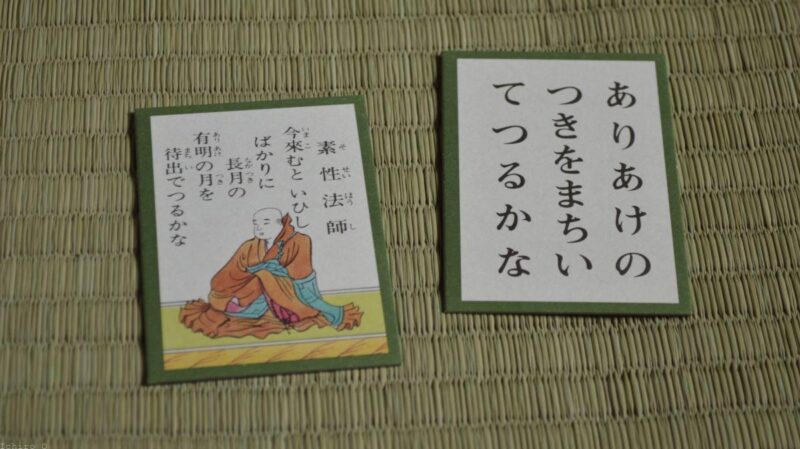 素性法師
今來むといひし
ばかりに
長月の
有明の月を
待出でつるかな
ありあけの
つきをまちい
てつるかな
Ichiro O